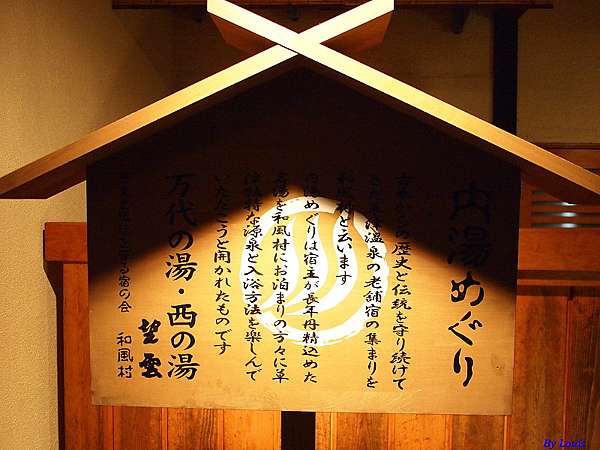 内湯めぐり
古来からの歴史と伝統を守り続けて
温泉の老舗宿の集まりを
和風村と云います
内湯めぐりは宿主が長年丹精込めた
お湯を和風村にお泊まりの方々に草
津独特な源泉と入浴方法を楽しんで
いただこうと開かれたものです
万代の湯・西の湯
望雲
守る宿の会 和風村
By Louis